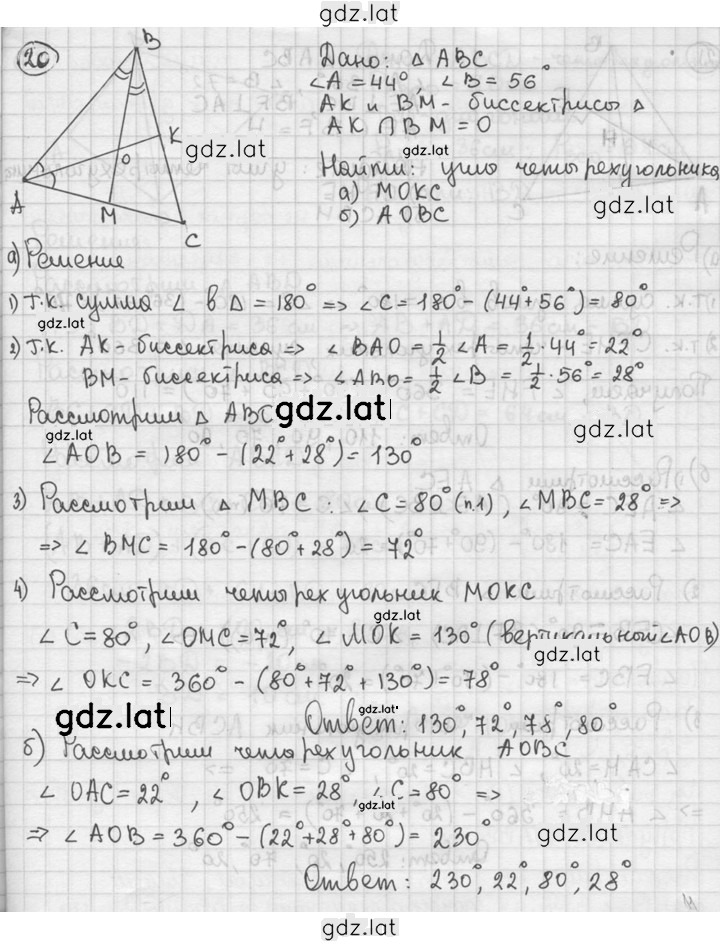 gdz.lat
20
B
K
O
A
M
C
Дано: △ ABC
∠A = 44°, ∠B = 56°
AK и BM - биссектрисы △
AK ∩ BM = O
gdz.lat
gdz.lat
Найти: углы четырехугольника
gdz.lat
а) MOKC
б) AOBC
а) Решение
1) т.к. сумма ∠ в △ = 180° => ∠C = 180° - (44° + 56°) = 80°
gdz.lat
gdz.lat
2) т.к. AK - биссектриса => ∠BAO = 1/2 ∠A = 1/2 · 44° = 22°
BM - биссектриса => ∠ABO = 1/2 ∠B = 1/2 · 56° = 28°
Рассмотрим △ ABC
gdz.lat
gdz.lat
gdz.lat
∠AOB = 180° - (22° + 28°) = 130°
3) Рассмотрим △ MBC : ∠C = 80° (п.1), ∠MBC = 28° =>
=> ∠ BMC = 180° - (80° + 28°) = 72°
4) Рассмотрим четырехугольник MOKC
gdz.lat
∠C = 80°, ∠OMC = 72°, ∠ MOK = 130° (вертикальной ∠AOB)
gdz.lat
=> ∠ OKC = 360° - (80° + 72° + 130°) = 78°
gdz.lat
Ответ: 130°, 72°, 78°, 80°
б) Рассмотрим четырехугольник AOBC
∠ OAC = 22°, ∠ OBK = 28°, ∠C = 80° =>
gdz.lat
=> ∠ AOB = 360° - (22° + 28° + 80°) = 230°
gdz.lat
Ответ: 230°, 22°, 80°, 28°
gdz.lat